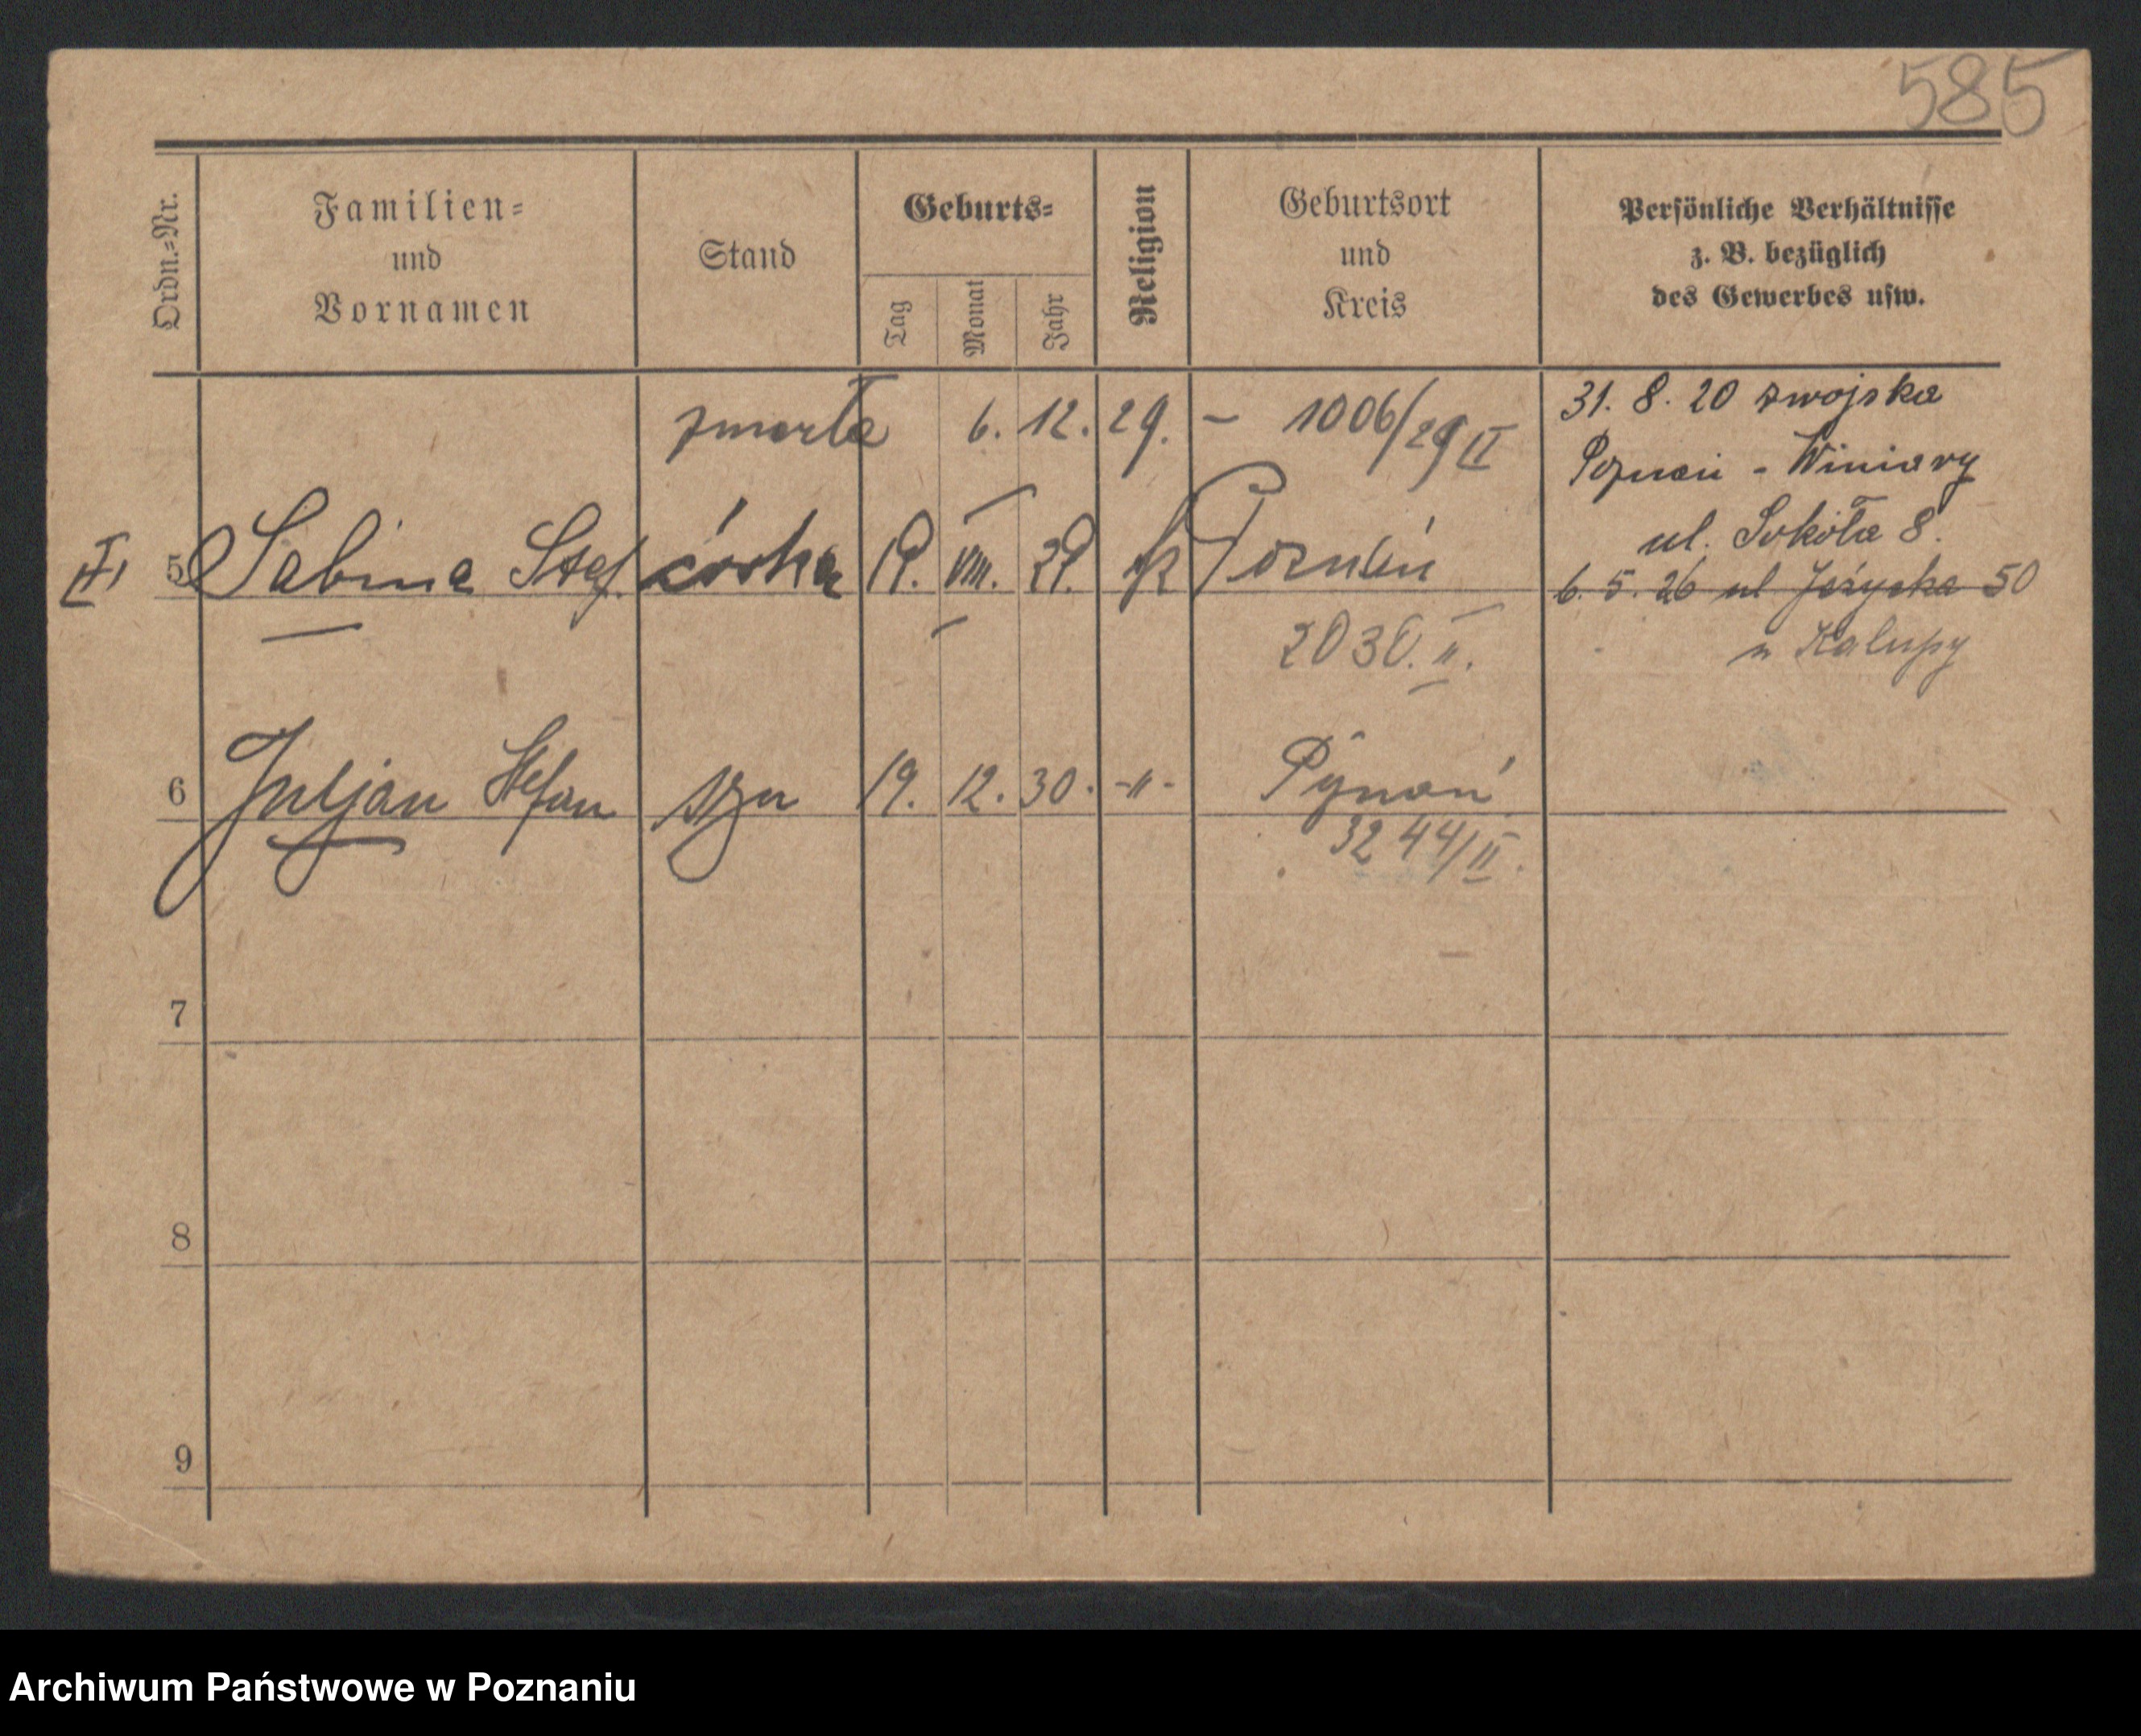 585
Ordn.-Nr.
Familien-
und
Vornamen
Stand
Geburts-
Tag
Monat
Jahr
Religion
Geburtsort
und
Kreis
Persönliche Verhältnisse
z. B. bezüglich
des Gewerbes usw.
zmarła 6. 12. 29. – 1006/29 II
31. 8. 20 z wojska
Poznań - Winiary
ul. Sokoła 8.
6. 5. 26 ul Jeżycka 50
u Kalupy
5 Sabina Stef. córka 19. VIII. 29. rk Poznań
2030. II.
6 Juljan Stefan syn 19. 12. 30. -"- Poznań
3244/II.
7
8
9
Archiwum Państwowe w Poznaniu